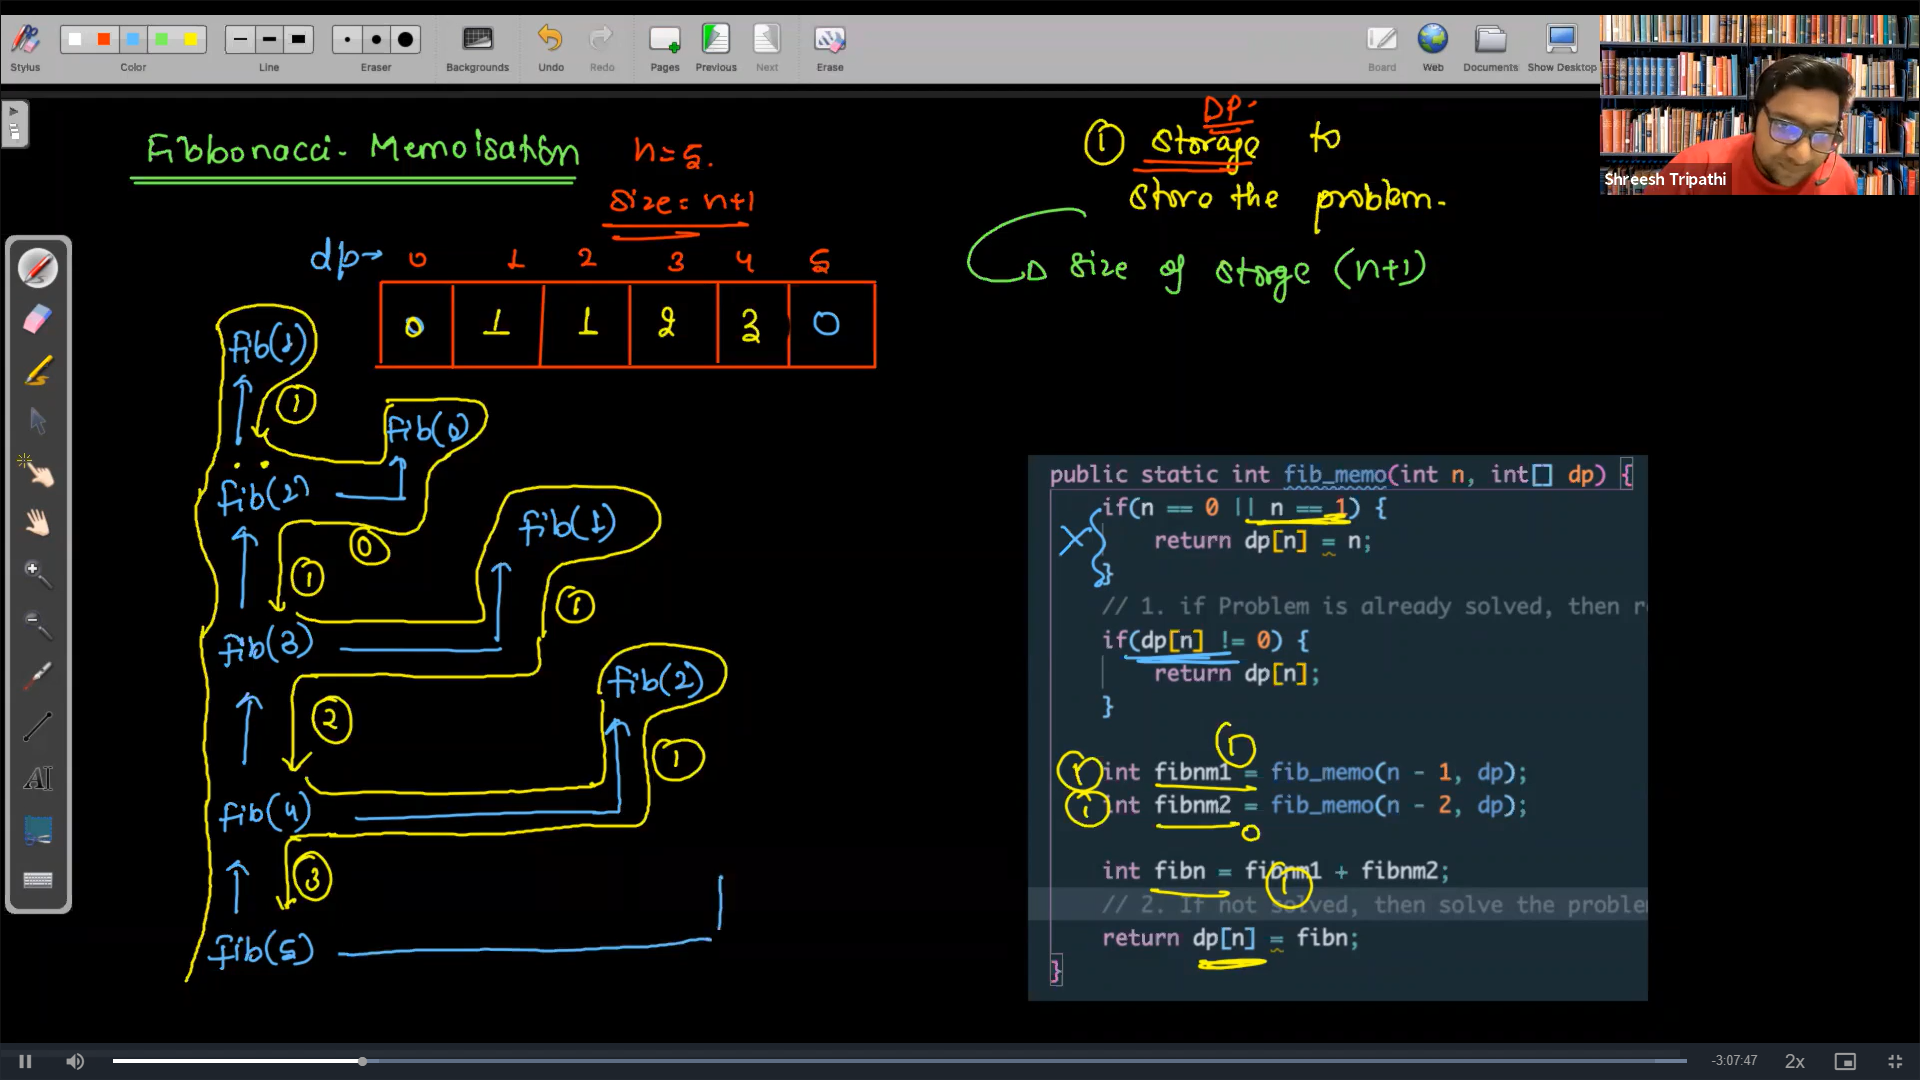 Stylus Color Line Eraser Backgrounds Undo Redo Pages Previous Next Erase Board Web Documents Show Desktop
Shreesh Tripathi
Fibbonacci- Memoisation
n=5.
size = n+1
dp→ 0 1 2 3 4 5
0 1 1 2 3 0
① DP.
storage to
store the problem.
size of storge (n+1)
fib(1)
①
fib(0)
fib(2)
⓪
①
fib(1)
①
fib(3)
②
fib(2)
①
fib(4)
③
fib(5)
public static int fib_memo(int n, int[] dp) {
if(n == 0 || n == 1) {
return dp[n] = n;
}
// 1. if Problem is already solved, then r
if(dp[n] != 0) {
return dp[n];
}
①
① int fibnm1 = fib_memo(n - 1, dp);
① int fibnm2 = fib_memo(n - 2, dp);
0
int fibn = fibnm1 + fibnm2;
①
// 2. If not solved, then solve the proble
return dp[n] = fibn;
}
AI
-3:07:47 2x